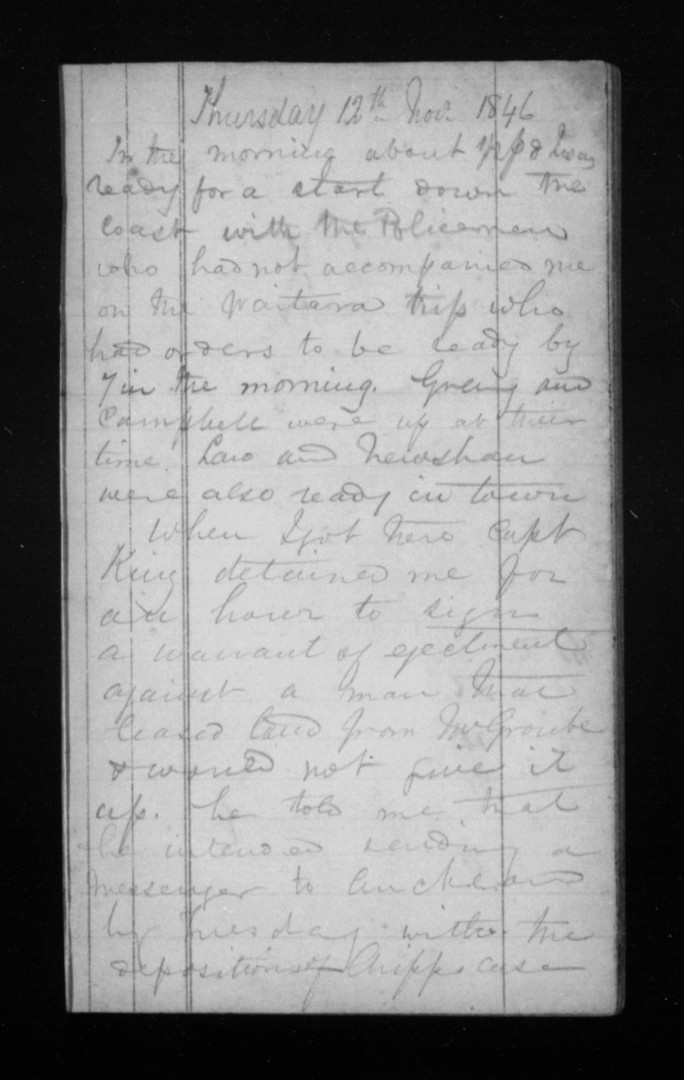 Thursday 12th Novr. 1846
In the morning about 1/2 p 8 I was
ready for a start down the
Coast with the Policemen
who had not accompanied me
on the Waitara trip who
had orders to be ready by
7 in the morning. Greing and
Campbell were up at their
time. Law and Newsham
were also ready in town
When I got here Capt
King detained me for
an hour to sign
a warrant of ejectment
against a man that
leased land from Mr Groube
& would not give it
up. he told me that
he intended sending a
messenger to Auckland
by Tuesday with the
depositions of Chipps case